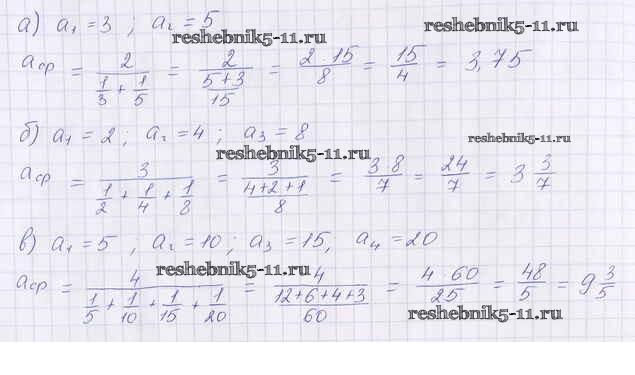 а) a₁ = 3 ; a₂ = 5
reshebnik5-11.ru reshebnik5-11.ru
aср = 2/(1/3 + 1/5) = 2/((5+3)/15) = (2·15)/8 = 15/4 = 3,75
б) a₁ = 2 ; a₂ = 4 ; a₃ = 8
reshebnik5-11.ru
reshebnik5-11.ru
aср = 3/(1/2 + 1/4 + 1/8) = 3/((4+2+1)/8) = (3·8)/7 = 24/7 = 3 3/7
в) a₁ = 5 ; a₂ = 10 ; a₃ = 15, a₄ = 20
reshebnik5-11.ru
aср = 4/(1/5 + 1/10 + 1/15 + 1/20) = 4/((12+6+4+3)/60) = (4·60)/25 = 48/5 = 9 3/5
reshebnik5-11.ru